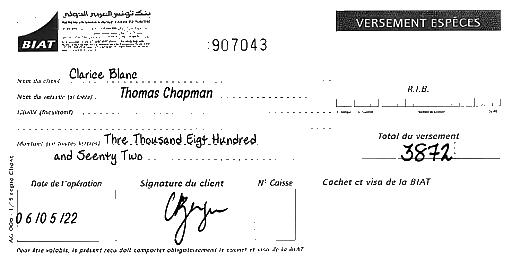 بنك تونس العربي الدولي
BIAT
VERSEMENT ESPÈCES
907043
Nom du client Clarice Blanc
Nom du verseur (si tiers) Thomas Chapman
R.I.B.
Libellé (facultatif)
Montant (en toutes lettres) Thre Thousand Eigt Hundred
and Seenty Two
Total du versement
3872
Date de l'opération
Signature du client
N° Caisse
Cachet et visa de la BIAT
06/05/22
Pour être valable, le présent reçu doit comporter obligatoirement le cachet et visa de la BIAT